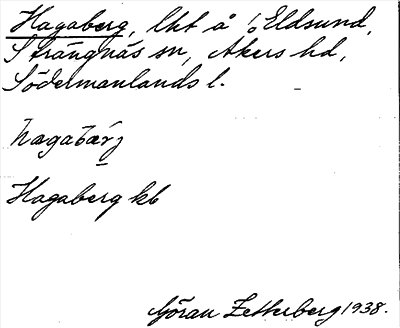 Hagaberg, lht å 1/0 Eldsund,
Strängnäs sn, Åkers hd,
Södermanlands l.
hagabærj
Hagaberg kb
Göran Zetterberg 1938.